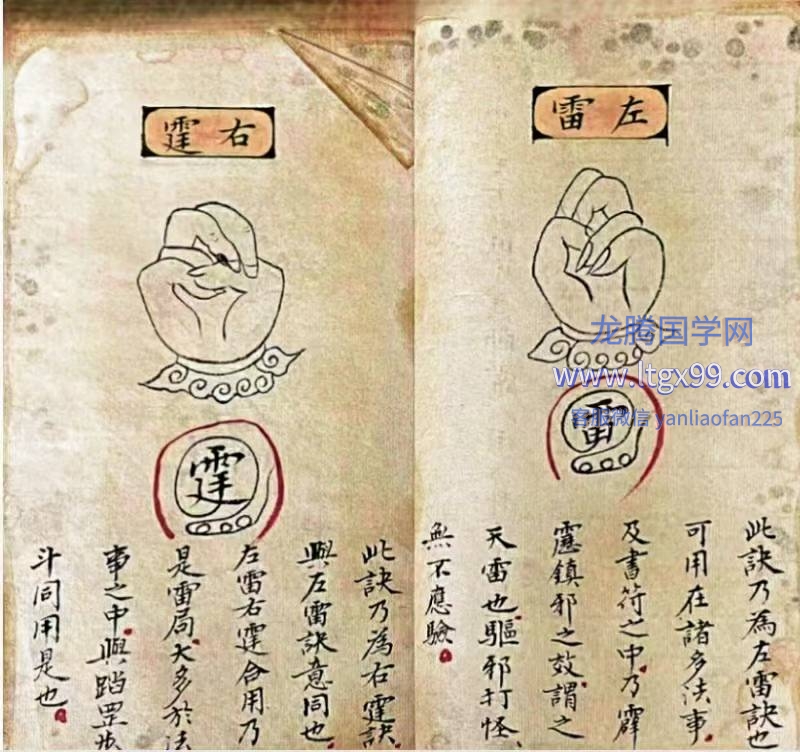 左雷
龙腾国学网
www.ltgx99.com
客服微信 yanliaofan225
雷
此訣乃為左雷訣也
可用在諸多法事
及書符之中乃霹
靂鎮邪之效謂之
天雷也驅邪打怪
無不應驗
右霆
霆
此訣乃為右霆訣
與左雷訣意同也
左雷右霆合用乃
是雷局大多於法
事之中與踏罡步
斗同用是也